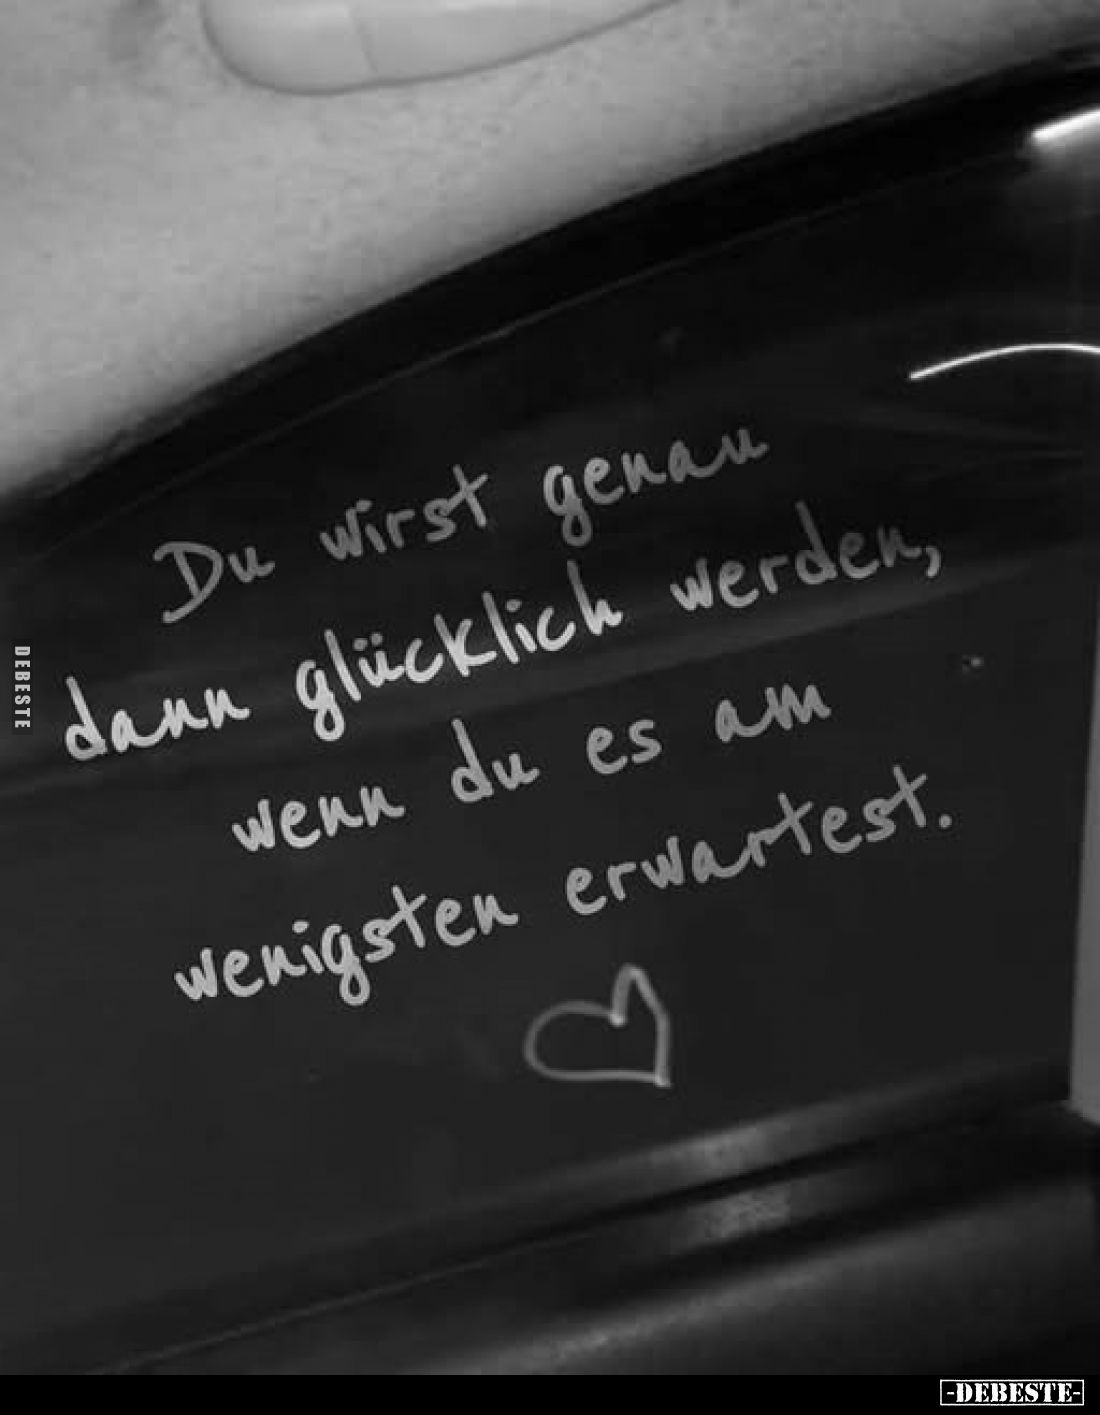 Du wirst genau
dann glücklich werden,
wenn du es am
wenigsten erwartest.
DEBESTE
-DEBESTE-